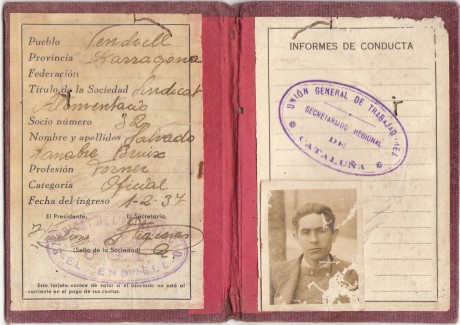 Pueblo Vendrell
Provincia Tarragona
Federación
Título de la Sociedad Sindicat
Alimentació
Socio número 32
Nombre y apellidos Salvadó
Fanabre Bruix
Profesión Forner
Categoría Oficial
Fecha del ingreso 1-2-37
El Presidente, El Secretario,
Figueras
(Sello de la Sociedad)
EL VENDRELL
Esta tarjeta carece de valor si el asociado no está al
corriente en el pago de sus cuotas.
INFORMES DE CONDUCTA
UNIÓN GENERAL DE TRABAJADORES
SECRETARIADO REGIONAL
DE
CATALUÑA